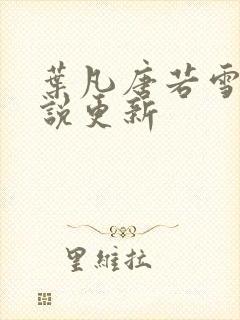 葉凡唐若雪
說更新
里維拉